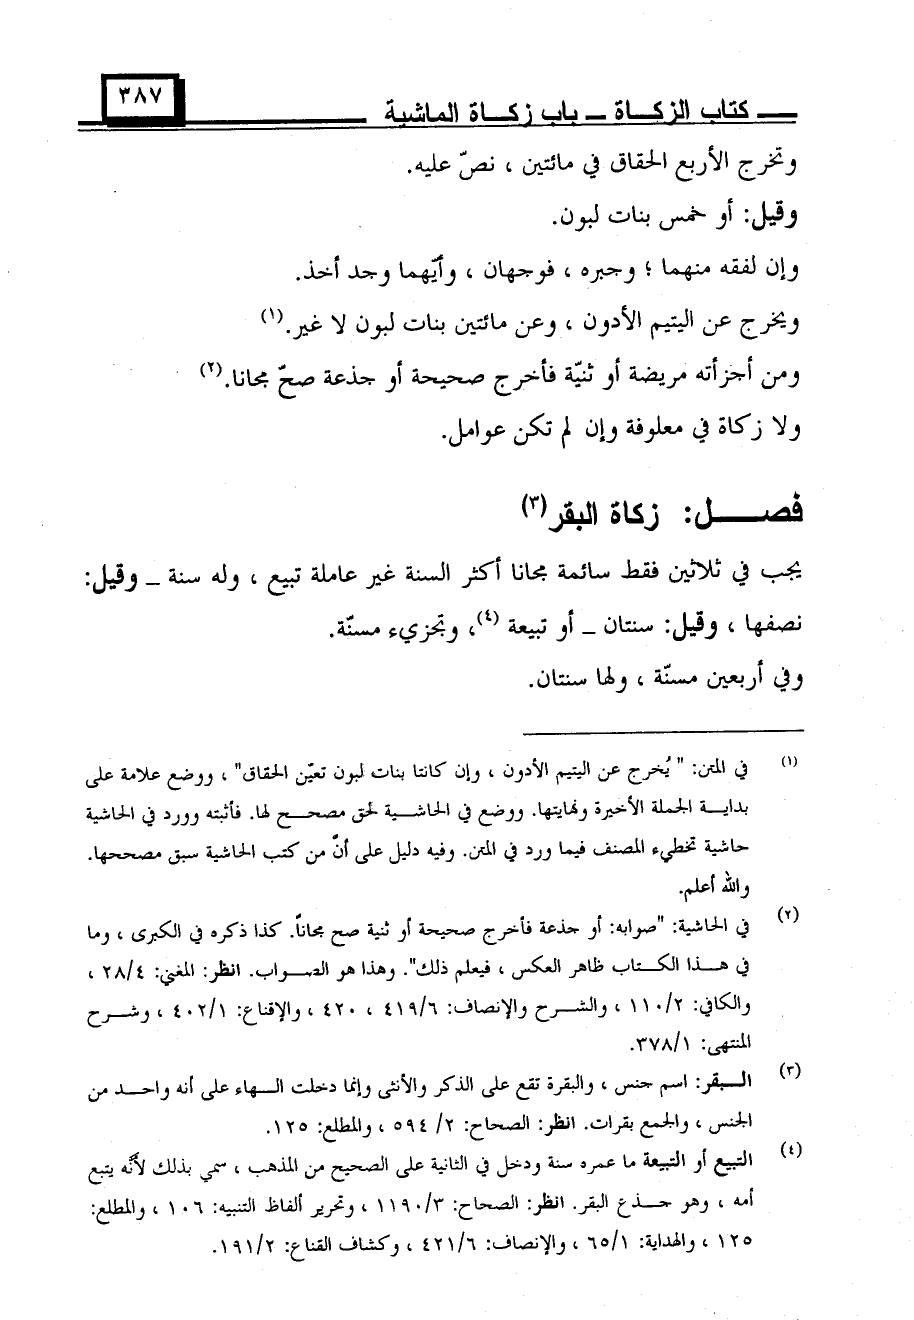 كتاب الزكاة ــ باب زكاة الماشية
٣٨٧
وتخرج الأربع الحقاق في مائتين ، نصّ عليه.
وقيل: أو خمس بنات لبون.
وإن لفقه منهما ؛ وجبره ، فوجهان ، وأيّهما وجد أخذ.
ويخرج عن اليتيم الأدون ، وعن مائتين بنات لبون لا غير.(١)
ومن أجزأته مريضة أو ثنيّة فأخرج صحيحة أو جذعة صحّ مجانا.(٢)
ولا زكاة في معلوفة وإن لم تكن عوامل.
فصــل: زكاة البقر(٣)
يجب في ثلاثين فقط سائمة مجانا أكثر السنة غير عاملة تبيع ، وله سنة ــ وقيل:
نصفها ، وقيل: سنتان ــ أو تبيعة (٤)، وتجزيء مسنّة.
وفي أربعين مسنّة ، ولها سنتان.
(١) في المتن: "يُخرج عن اليتيم الأدون ، وإن كانتا بنات لبون تعيّن الحقاق" ، ووضع علامة على
بدايــة الجملة الأخيرة ونهايتها. ووضع في الحاشــية لحق مصحــح لها. فأثبته وورد في الحاشية
حاشية تخطيء المصنف فيما ورد في المتن. وفيه دليل على أنّ من كتب الحاشية سبق مصححها.
والله أعلم.
(٢) في الحاشية: "صوابه: أو جذعة فأخرج صحيحة أو ثنية صح مجاناً. كذا ذكره في الكبرى ، وما
في هــذا الكــتاب ظاهر العكس ، فيعلم ذلك". وهذا هو الصواب. انظر: المغني: ٢٨/٤ ،
والكافي: ١١٠/٢ ، والشــرح والإنصاف: ٤١٩/٦ ، ٤٢٠ ، والإقناع: ٤٠٢/١ ، وشــرح
المنتهى: ٣٧٨/١.
(٣) الــبقر: اسم جنس ، والبقرة تقع على الذكر والأنثى وإنما دخلت الــهاء على أنه واحــد من
الجنس ، والجمع بقرات. انظر: الصحاح: ٢/ ٥٩٤ ، والمطلع: ١٢٥.
(٤) التبيع أو التبيعة ما عمره سنة ودخل في الثانية على الصحيح من المذهب ، سمي بذلك لأنّه يتبع
أمه ، وهو جــذع البقر. انظر: الصحاح: ١١٩٠/٣ ، وتحرير ألفاظ التنبيه: ١٠٦ ، والمطلع:
١٢٥ ، والهداية: ٦٥/١ ، والإنصاف: ٤٢١/٦ ، وكشاف القناع: ١٩١/٢.